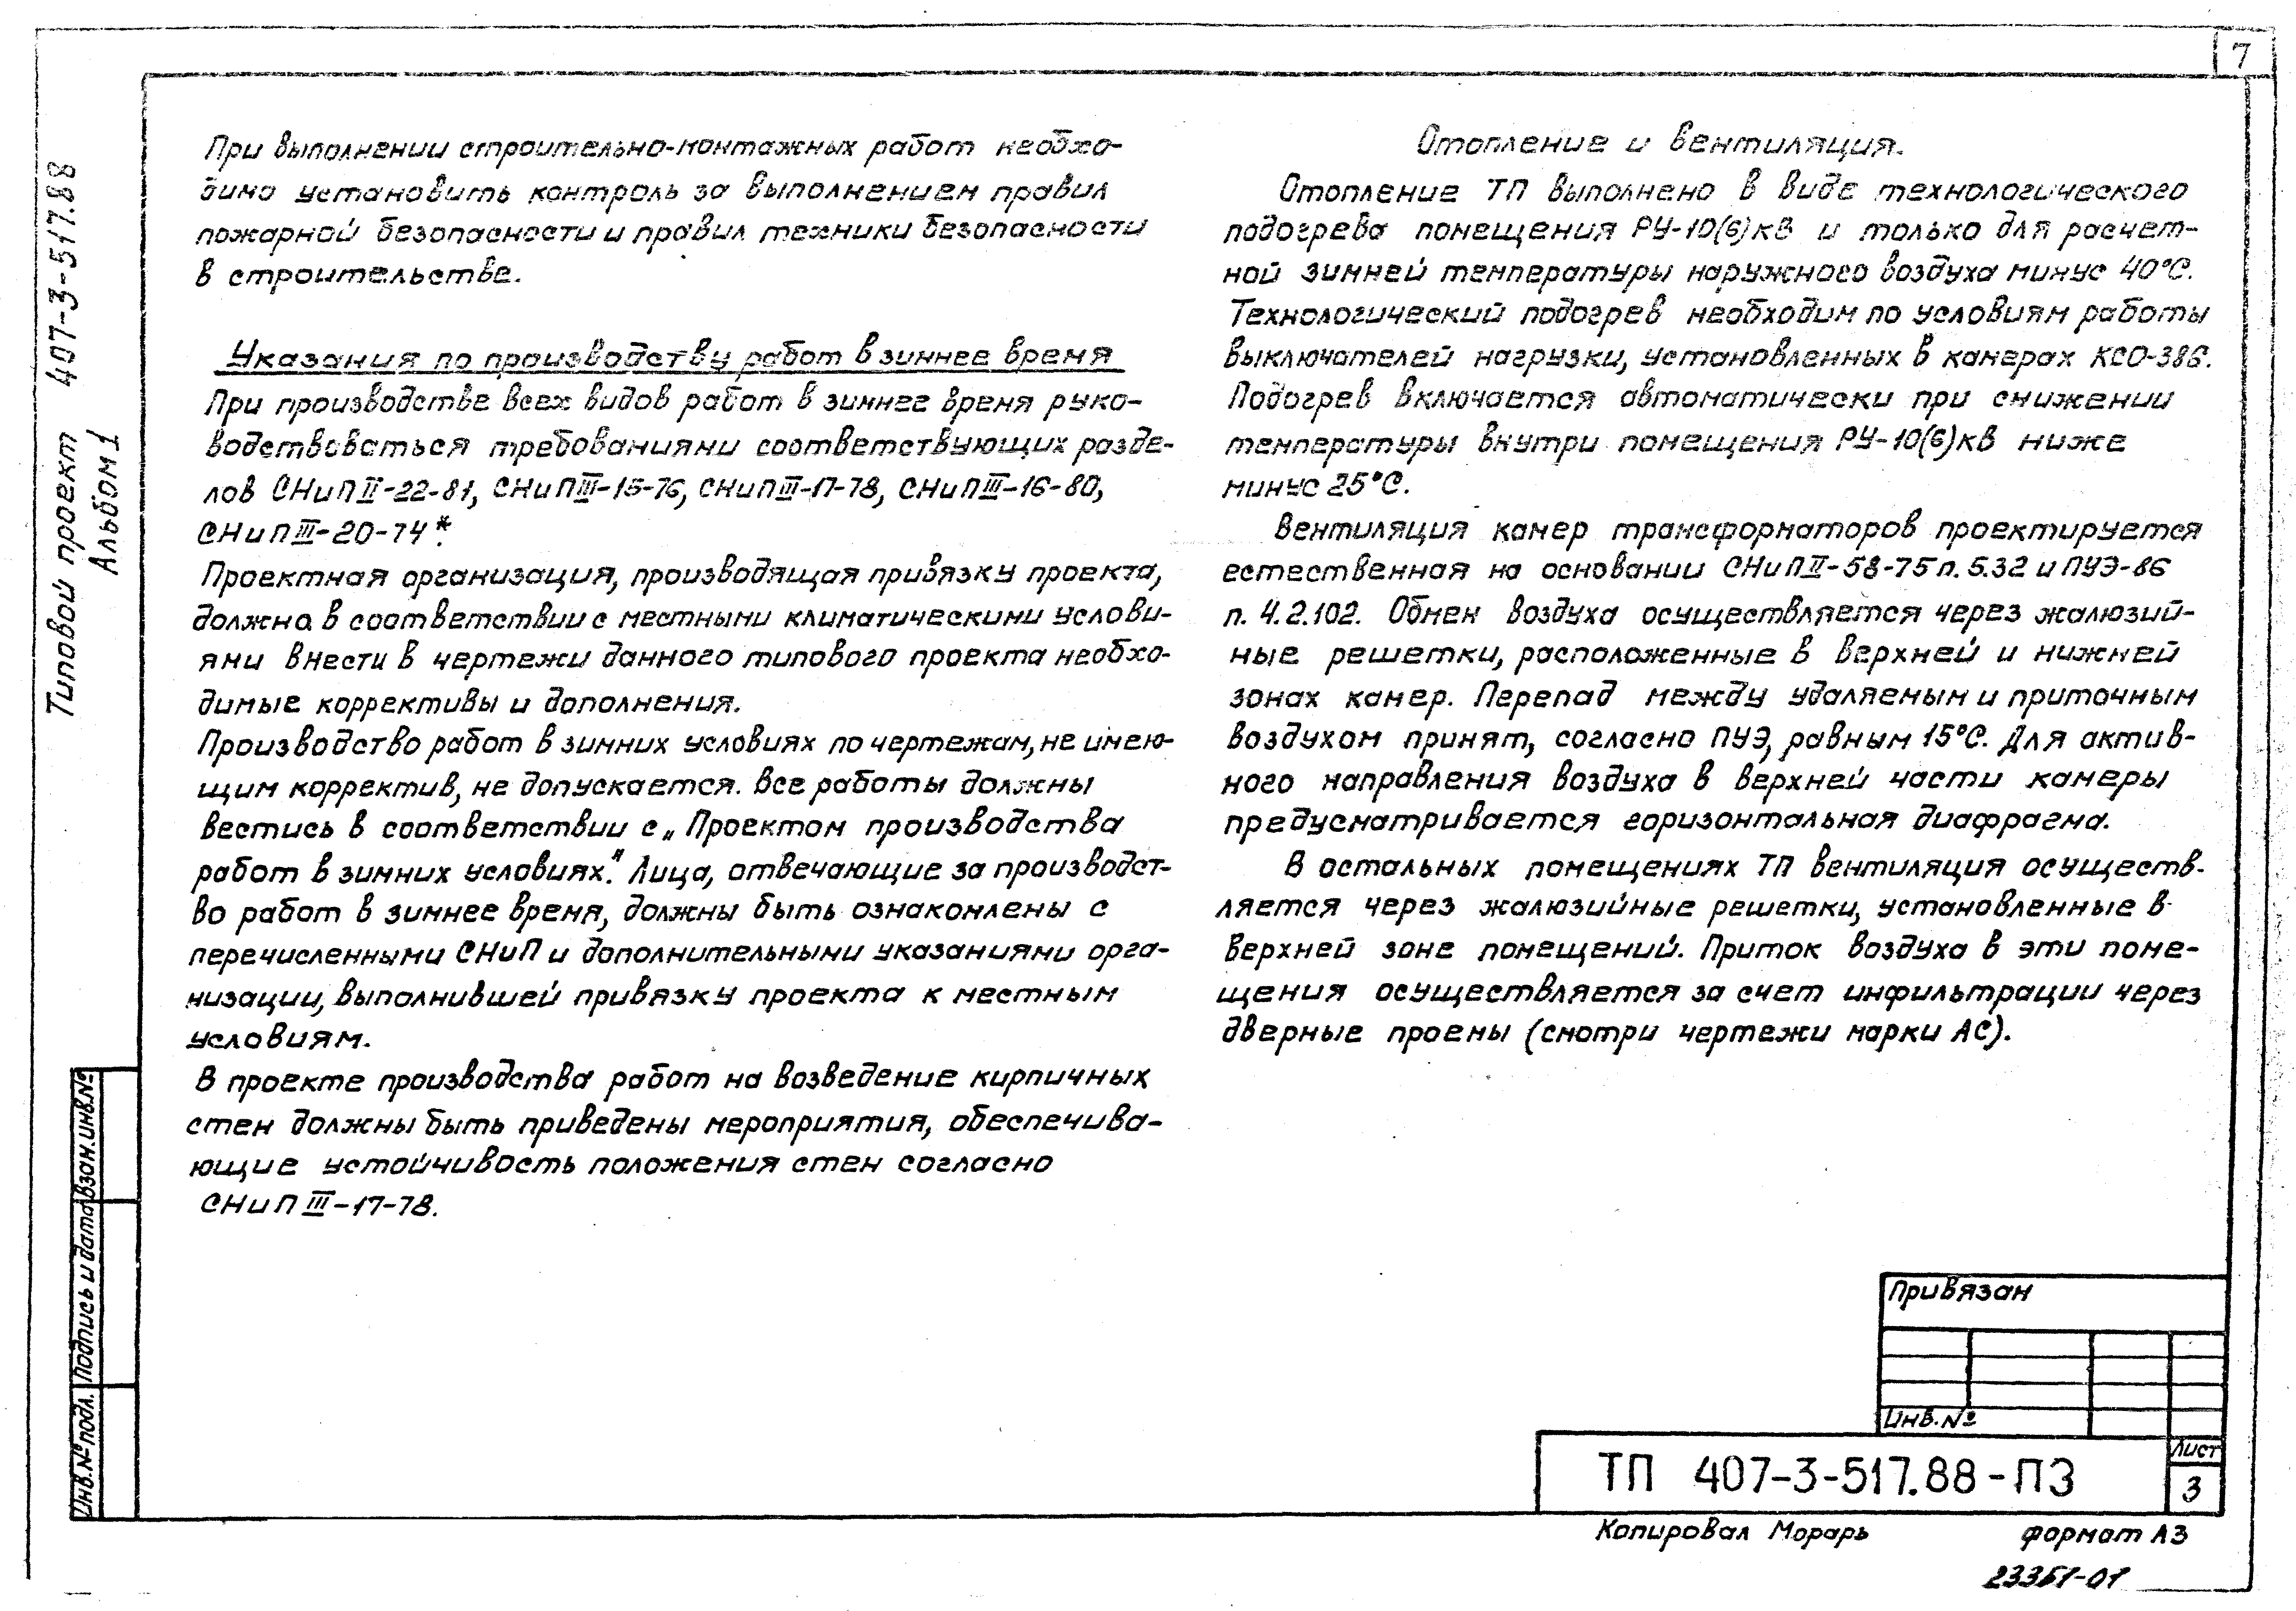 7
Типовой проект 407-3-517.88
Альбом 1
При выполнении строительно-монтажных работ необхо-
димо установить контроль за выполнением правил
пожарной безопасности и правил техники безопасности
в строительстве.
Указания по производству работ в зимнее время
При производстве всех видов работ в зимнее время руко-
водствоваться требованиями соответствующих разде-
лов СНиП II-22-81, СНиП III-15-76, СНиП III-17-78, СНиП III-16-80,
СНиП III-20-74*.
Проектная организация, производящая привязку проекта,
должна в соответствии с местными климатическими услови-
ями внести в чертежи данного типового проекта необхо-
димые коррективы и дополнения.
Производство работ в зимних условиях по чертежам, не имею-
щим корректив, не допускается. Все работы должны
вестись в соответствии с „Проектом производства
работ в зимних условиях". Лица, отвечающие за производст-
во работ в зимнее время, должны быть ознакомлены с
перечисленными СНиП и дополнительными указаниями орга-
низации, выполнившей привязку проекта к местным
условиям.
В проекте производства работ на возведение кирпичных
стен должны быть приведены мероприятия, обеспечива-
ющие устойчивость положения стен согласно
СНиП III-17-78.
Отопление и вентиляция.
Отопление ТП выполнено в виде технологического
подогрева помещения РУ-10(6)кВ и только для расчет-
ной зимней температуры наружного воздуха минус 40°С.
Технологический подогрев необходим по условиям работы
выключателей нагрузки, установленных в камерах КСО-386.
Подогрев включается автоматически при снижении
температуры внутри помещения РУ-10(6)кВ ниже
минус 25°С.
Вентиляция камер трансформаторов проектируется
естественная на основании СНиП II-58-75 п. 5.32 и ПУЭ-86
п. 4.2.102. Обмен воздуха осуществляется через жалюзий-
ные решетки, расположенные в верхней и нижней
зонах камер. Перепад между удаляемым и приточным
воздухом принят, согласно ПУЭ, равным 15°С. Для актив-
ного направления воздуха в верхней части камеры
предусматривается горизонтальная диафрагма.
В остальных помещениях ТП вентиляция осуществ-
ляется через жалюзийные решетки, установленные в
верхней зоне помещений. Приток воздуха в эти поме-
щения осуществляется за счет инфильтрации через
дверные проемы (смотри чертежи марки АС).
Инв.№ подл. Подпись и дата Взам.инв.№
Привязан
Инв.№
ТП 407-3-517.88-ПЗ
Лист
3
Копировал Морарь
формат А3
23351-01